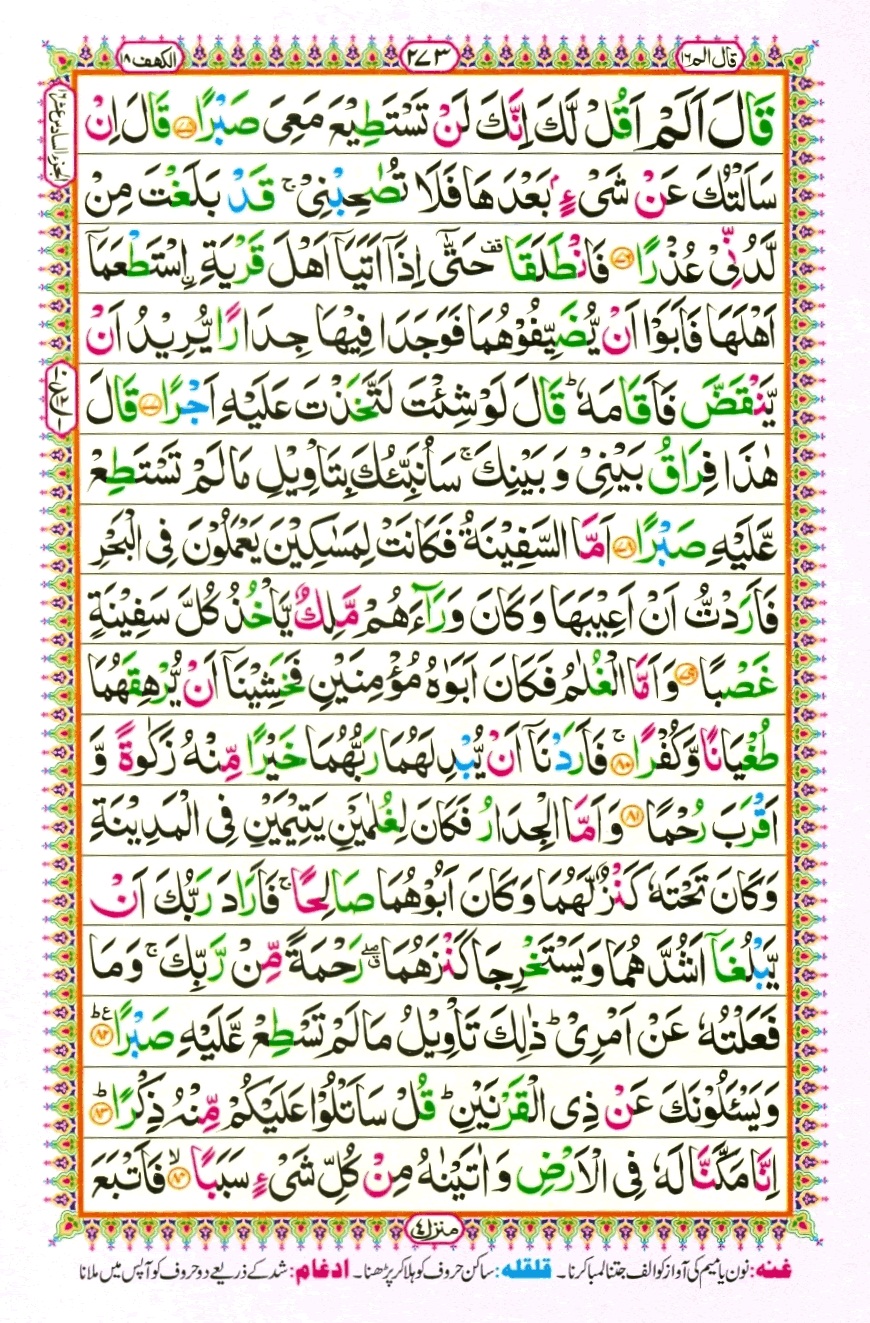 قال الم ۱۶
۲۷۳
الکھف ۱۸
الجزء السادس عشر ۱۶
قَالَ اَلَمْ اَقُلْ لَّكَ اِنَّكَ لَنْ تَسْتَطِيْعَ مَعِيَ صَبْرًا ﴿۷۵﴾ قَالَ اِنْ
سَاَلْتُكَ عَنْ شَیْءٍۭ بَعْدَهَا فَلَا تُصٰحِبْنِیْ ۚ قَدْ بَلَغْتَ مِنْ
لَّدُنِّیْ عُذْرًا ﴿۷۶﴾ فَانْطَلَقَا ۥقف حَتّٰۤی اِذَاۤ اَتَيَاۤ اَهْلَ قَرْيَةِ ۟اسْتَطْعَمَاۤ
اَهْلَهَا فَاَبَوْا اَنْ يُّضَيِّفُوْهُمَا فَوَجَدَا فِيْهَا جِدَارًا يُّرِيْدُ اَنْ
يَّنْقَضَّ فَاَقَامَهٗ ؕ قَالَ لَوْ شِئْتَ لَتَّخَذْتَ عَلَيْهِ اَجْرًا ﴿۷۷﴾ قَالَ
هٰذَا فِرَاقُ بَيْنِیْ وَ بَيْنِكَ ۚ سَاُنَبِّئُكَ بِتَاْوِيْلِ مَا لَمْ تَسْتَطِعْ
عَّلَيْهِ صَبْرًا ﴿۷۸﴾ اَمَّا السَّفِيْنَةُ فَكَانَتْ لِمَسٰكِيْنَ يَعْمَلُوْنَ فِی الْبَحْرِ
فَاَرَدْتُّ اَنْ اَعِيْبَهَا وَكَانَ وَرَآءَهُمْ مَّلِكٌ يَّاْخُذُ كُلَّ سَفِيْنَةٍ
غَصْبًا ﴿۷۹﴾ وَ اَمَّا الْغُلٰمُ فَكَانَ اَبَوٰهُ مُؤْمِنَيْنِ فَخَشِيْنَاۤ اَنْ يُّرْهِقَهُمَا
طُغْيَانًا وَّكُفْرًا ﴿۸۰﴾ ۚ فَاَرَدْنَاۤ اَنْ يُّبْدِلَهُمَا رَبُّهُمَا خَيْرًا مِّنْهُ زَكٰوةً وَّ
اَقْرَبَ رُحْمًا ﴿۸۱﴾ وَ اَمَّا الْجِدَارُ فَكَانَ لِغُلٰمَيْنِ يَتِيْمَيْنِ فِی الْمَدِيْنَةِ
وَكَانَ تَحْتَهٗ كَنْزٌ لَّهُمَا وَكَانَ اَبُوْهُمَا صَالِحًا ۚ فَاَرَادَ رَبُّكَ اَنْ
يَّبْلُغَاۤ اَشُدَّهُمَا وَيَسْتَخْرِجَا كَنْزَهُمَا ۖق رَحْمَةً مِّنْ رَّبِّكَ ۚ وَمَا
فَعَلْتُهٗ عَنْ اَمْرِیْ ؕ ذٰلِكَ تَاْوِيْلُ مَا لَمْ تَسْطِعْ عَّلَيْهِ صَبْرًا ﴿۸۲﴾ؕ ع
وَيَسْـَٔلُوْنَكَ عَنْ ذِی الْقَرْنَيْنِ ؕ قُلْ سَاَتْلُوْا عَلَيْكُمْ مِّنْهُ ذِكْرًا ﴿۸۳﴾ؕ
اِنَّا مَكَّنَّا لَهٗ فِی الْاَرْضِ وَ اٰتَيْنٰهُ مِنْ كُلِّ شَیْءٍ سَبَبًا ﴿۸۴﴾ۙ فَاَتْبَعَ
منزل ۴
غنه: نون یا میم کی آواز کو الف جتنا لمبا کرنا۔ قلقله: ساکن حروف کو ہلا کر پڑھنا۔ ادغام: شد کے ذریعے دو حروف کو آپس میں ملانا